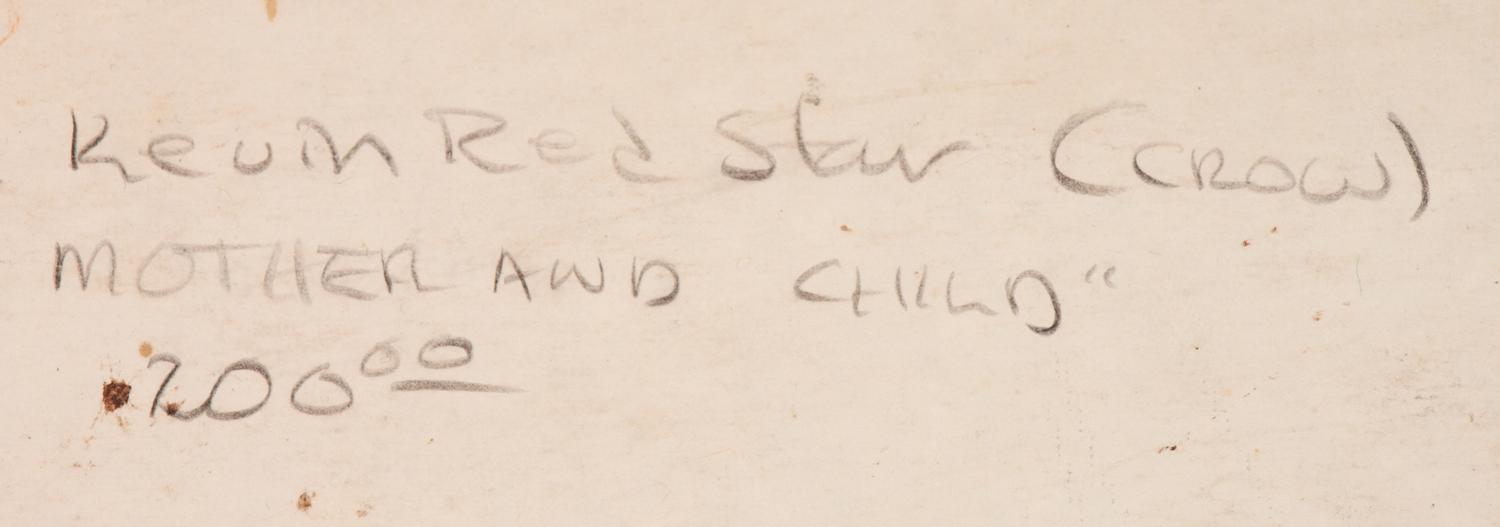 Kevin Red Star (CROW)
MOTHER AND CHILD"
200 00